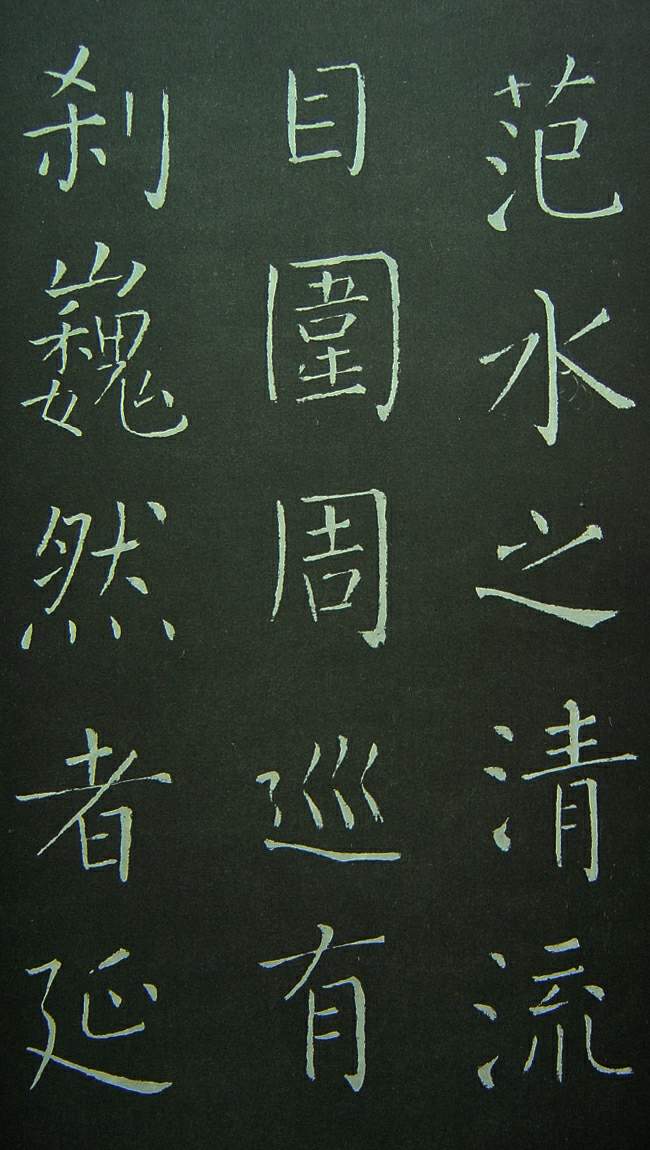 范水之清流
目圍周巡有
刹巍然者延